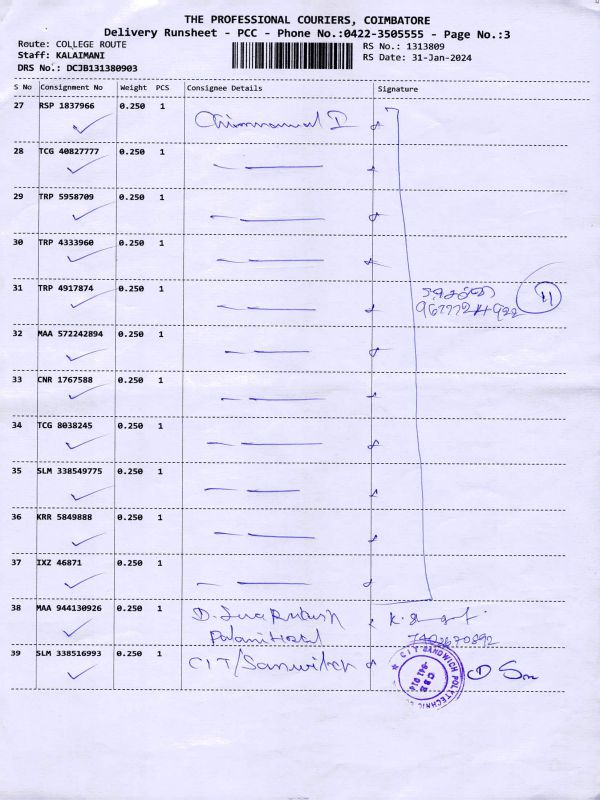 THE PROFESSIONAL COURIERS, COIMBATORE
Delivery Runsheet - PCC - Phone No.:0422-3505555 - Page No.:3
Route: COLLEGE ROUTE
RS No.: 1313809
Staff: KALAIMANI
RS Date: 31-Jan-2024
DRS No.: DCJB131380903
S No Consignment No Weight PCS Consignee Details Signature
27 RSP 1837966 0.250 1
28 TCG 40827777 0.250 1
29 TRP 5958709 0.250 1
30 TRP 4333960 0.250 1
31 TRP 4917874 0.250 1
11
32 MAA 572242894 0.250 1
33 CNR 1767588 0.250 1
34 TCG 8038245 0.250 1
35 SLM 338549775 0.250 1
36 KRR 5849888 0.250 1
37 IXZ 46871 0.250 1
38 MAA 944130926 0.250 1
Palani Hostel
7402670892
39 SLM 338516993 0.250 1 CIT/Sanwitch
CIT SANDWICH POLYTECHNIC
CBE
641 014